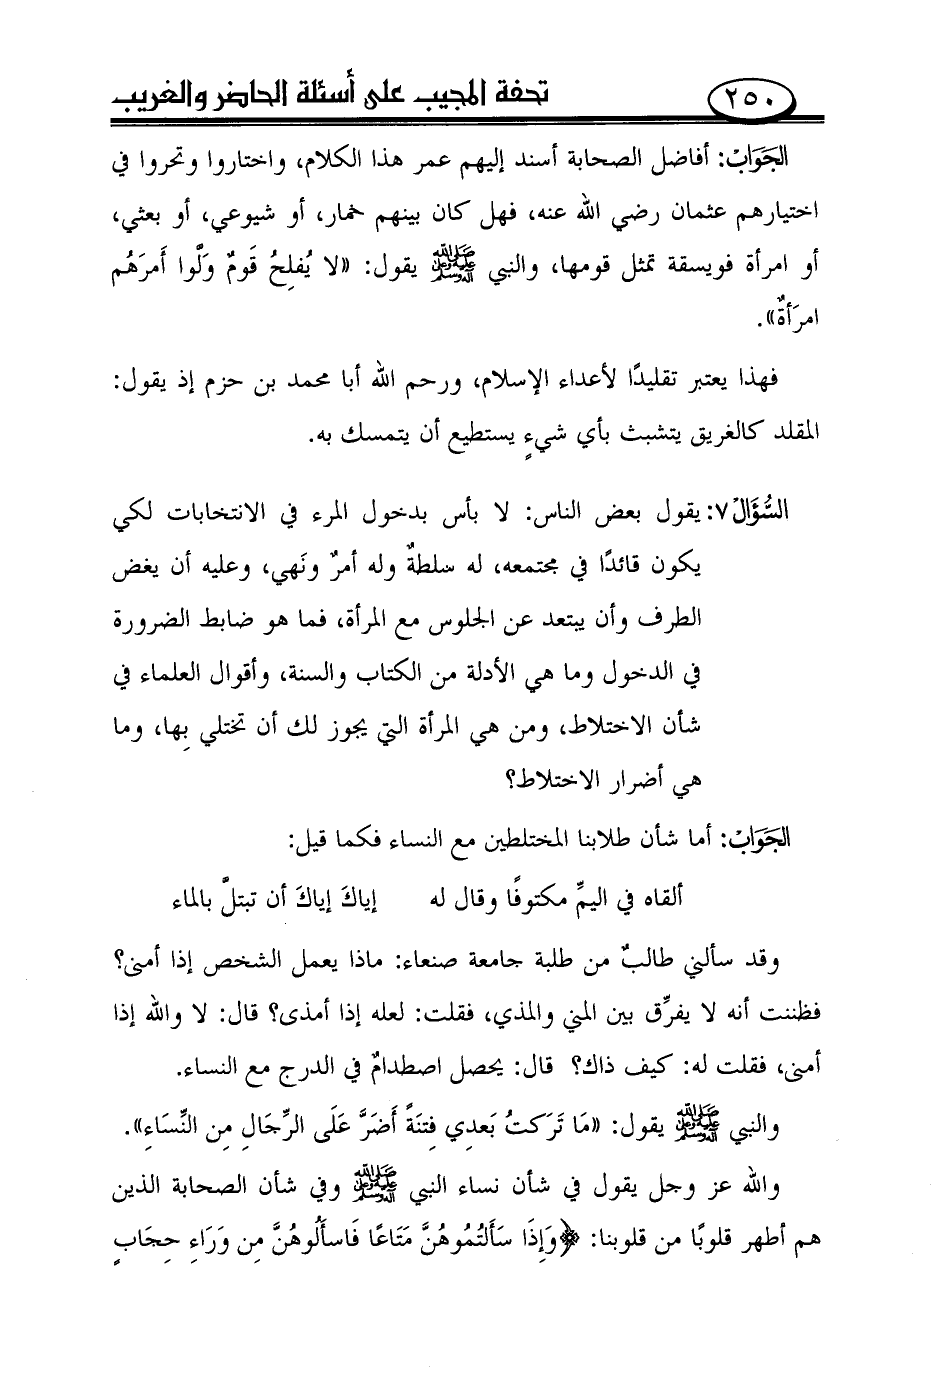 ٢٥٠ تحفة المجيب على أسئلة الحاضر والغريب
الجَوَابُ: أفاضل الصحابة أسند إليهم عمر هذا الكلام، واختاروا وتحروا في
اختيارهم عثمان رضي الله عنه، فهل كان بينهم خمار، أو شيوعي، أو بعثي،
أو امرأة فويسقة تمثل قومها، والنبي ﷺ يقول: «لا يُفلِحُ قَومٌ وَلَّوا أَمرَهُم
امرَأةٌ».
فهذا يعتبر تقليدًا لأعداء الإسلام، ورحم الله أبا محمد بن حزم إذ يقول:
المقلد كالغريق يتشبث بأي شيءٍ يستطيع أن يتمسك به.
السُّؤَالُ٧: يقول بعض الناس: لا بأس بدخول المرء في الانتخابات لكي
يكون قائدًا في مجتمعه، له سلطةٌ وله أمرٌ ونَهي، وعليه أن يغض
الطرف وأن يبتعد عن الجلوس مع المرأة، فما هو ضابط الضرورة
في الدخول وما هي الأدلة من الكتاب والسنة، وأقوال العلماء في
شأن الاختلاط، ومن هي المرأة التي يجوز لك أن تختلي بِها، وما
هي أضرار الاختلاط؟
الجَوَابُ: أما شأن طلابنا المختلطين مع النساء فكما قيل:
ألقاه في اليمِّ مكتوفًا وقال له إياكَ إياكَ أن تبتلَّ بالماء
وقد سألني طالبٌ من طلبة جامعة صنعاء: ماذا يعمل الشخص إذا أمنى؟
فظننت أنه لا يفرِّق بين المني والمذي، فقلت: لعله إذا أمذى؟ قال: لا والله إذا
أمنى، فقلت له: كيف ذاك؟ قال: يحصل اصطدامٌ في الدرج مع النساء.
والنبي ﷺ يقول: «مَا تَرَكتُ بَعدِي فِتنَةً أَضَرَّ عَلَى الرِّجَالِ مِن النِّسَاءِ».
والله عز وجل يقول في شأن نساء النبي ﷺ وفي شأن الصحابة الذين
هم أطهر قلوبًا من قلوبنا: ﴿وَإِذَا سَأَلتُمُوهُنَّ مَتَاعًا فَاسأَلُوهُنَّ مِن وَرَاءِ حِجَابٍ